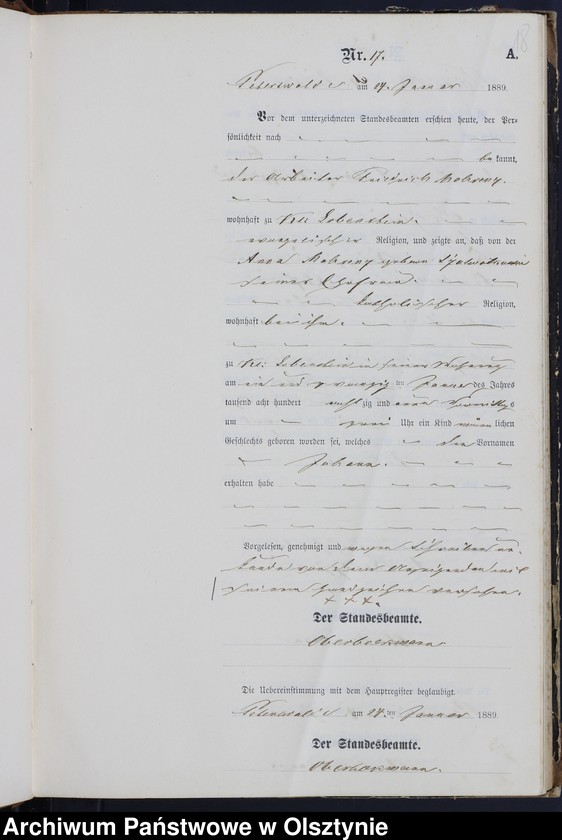 18
Nr. 17. A.
am 24. Januar 1889.
Vor dem unterzeichneten Standesbeamten erschien heute, der Per-
sönlichkeit nach
be kannt,
der Arbeiter Friedrich
wohnhaft zu Kl: Lobenstein.
evangelischer Religion, und zeigte an, daß von der
Anna geborne
seiner Ehefrau
katholischer Religion,
wohnhaft bei ihm
zu Kl: Lobenstein in seiner Wohnung
am ein und zwanzig ten Januar des Jahres
tausend acht hundert acht zig und neun Vormittags
um zwei Uhr ein Kind männ lichen
Geschlechts geboren worden sei, welches den Vornamen
Johann
erhalten habe
Vorgelesen, genehmigt und wegen Schreibens un-
kunde von dem Anzeigenden mit
seinem Handzeichen versehen.
+ + +.
Der Standesbeamte.
Die Uebereinstimmung mit dem Hauptregister beglaubigt.
am 24. ten Januar 1889.
Der Standesbeamte.
Archiwum Państwowe w Olsztynie